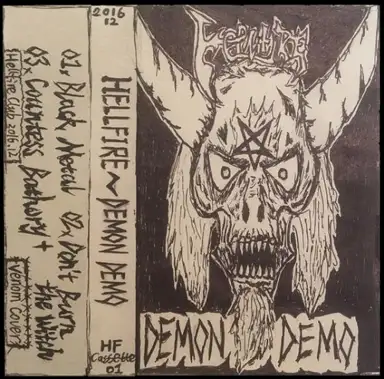 01, Black Metal 02, Don't Burn
the Witch
03, Countess Bathory +
Venom Covers
Hellfire Club 2016.12
2016
12
HELLFIRE ~ DEMON DEMO
HF
Cassette
01
HELLFIRE
DEMON DEMO